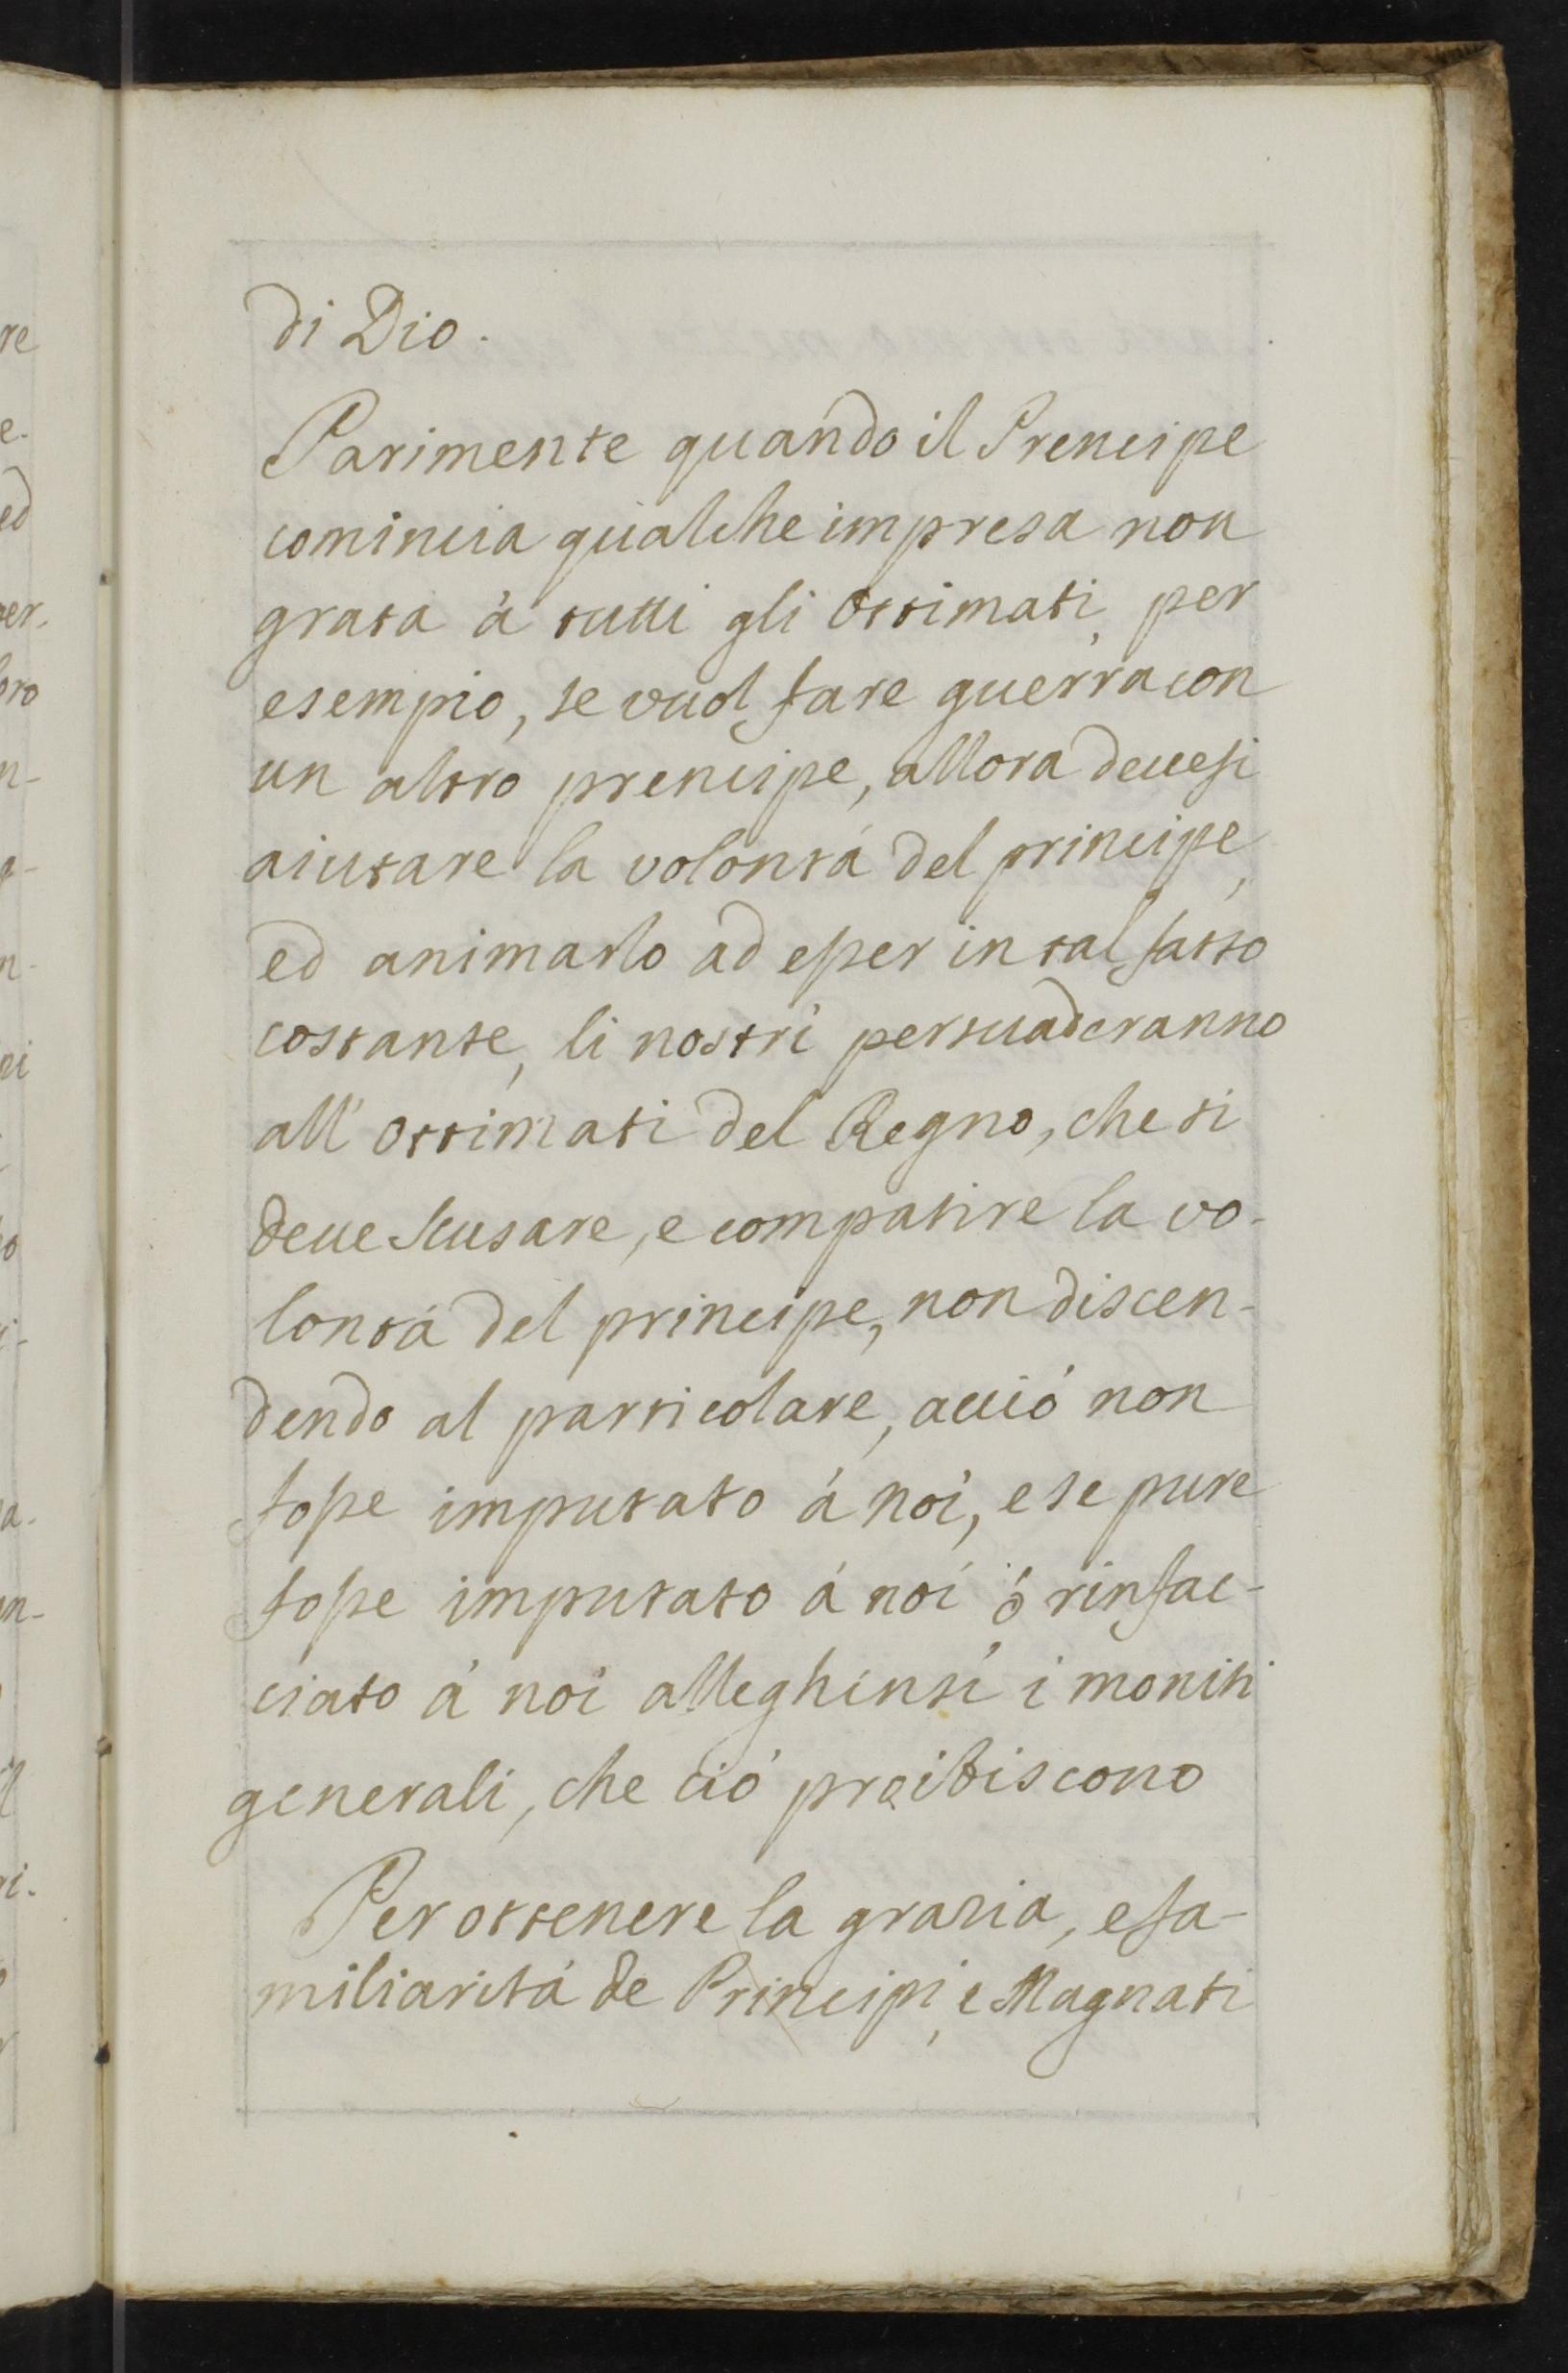 di Dio.
Parimente quando il Prencipe
comincia qualche impresa non
grata à tutti gli Ottimati, per
esempio, se vuol fare guerra con
un altro prencipe, allora devesi
aiutare la volontà del principe,
ed animarlo ad esser in tal fatto
costante, li nostri persuaderanno
all' ottimati del Regno, che si
deve scusare, e compatire la vo-
lontà del principe, non discen-
dendo al particolare, acciò non
fosse imputato à noi, e se pure
fosse imputato à noi ò rinfac-
ciato à noi alleghinsi i moniti
generali, che ciò proibiscono
Per ottenere la grazia, e fa-
miliarità de Principi, e Magnati
re
e-
ed
er.
oro
n-
n-
ni
o
i-
a-
n-
il
ri-